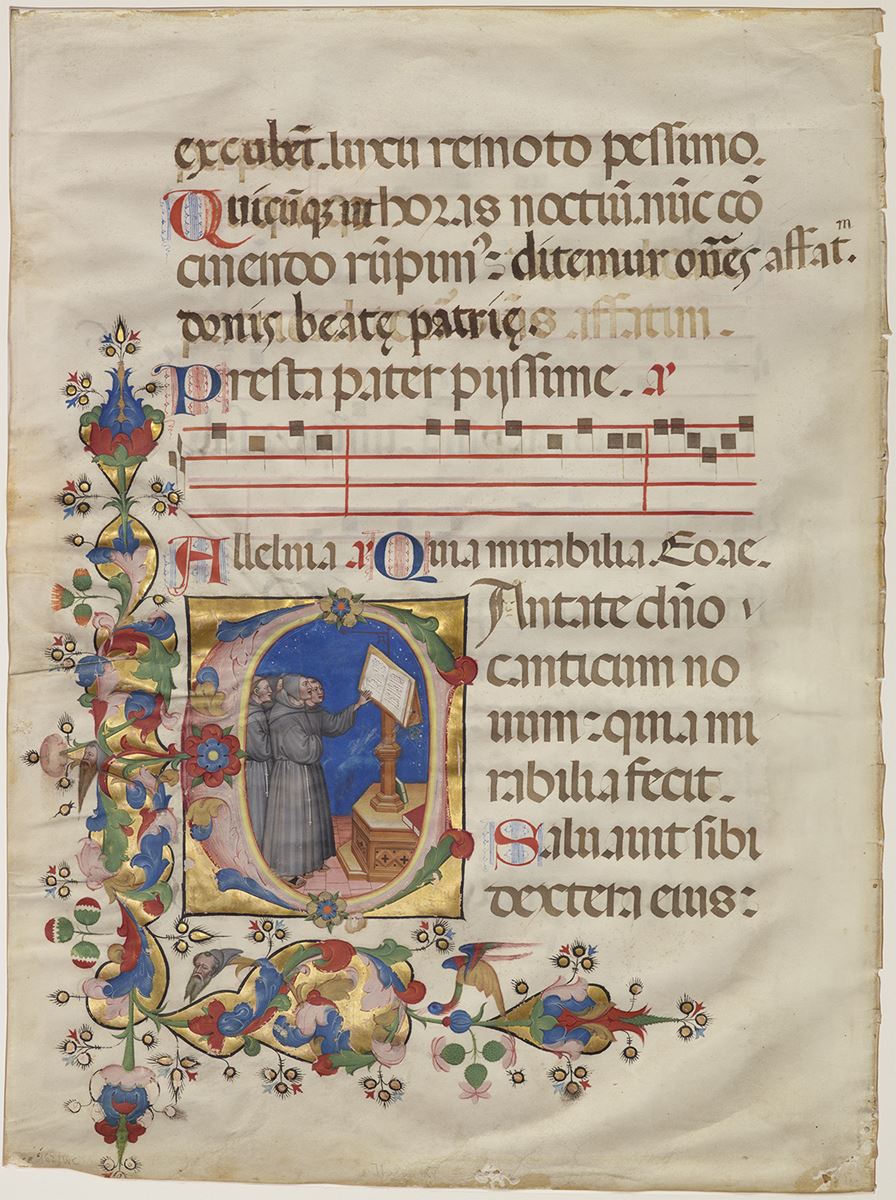 excubēt. luxu remoto pessimo.
Quicūqꝫ ut horas noctiū. nūc cō
cinendo rūpimꝰ: ditemur on̄es affatᵐ.
donis beatę patrię.
affatim.
Presta pater pijssime. a͞r
Alleluia a͞r Quia mirabilia. Eoae.
Antate dn̄o
canticum no
uum: quia mi
rabilia fecit.
Saluauit sibi
dextera eius: